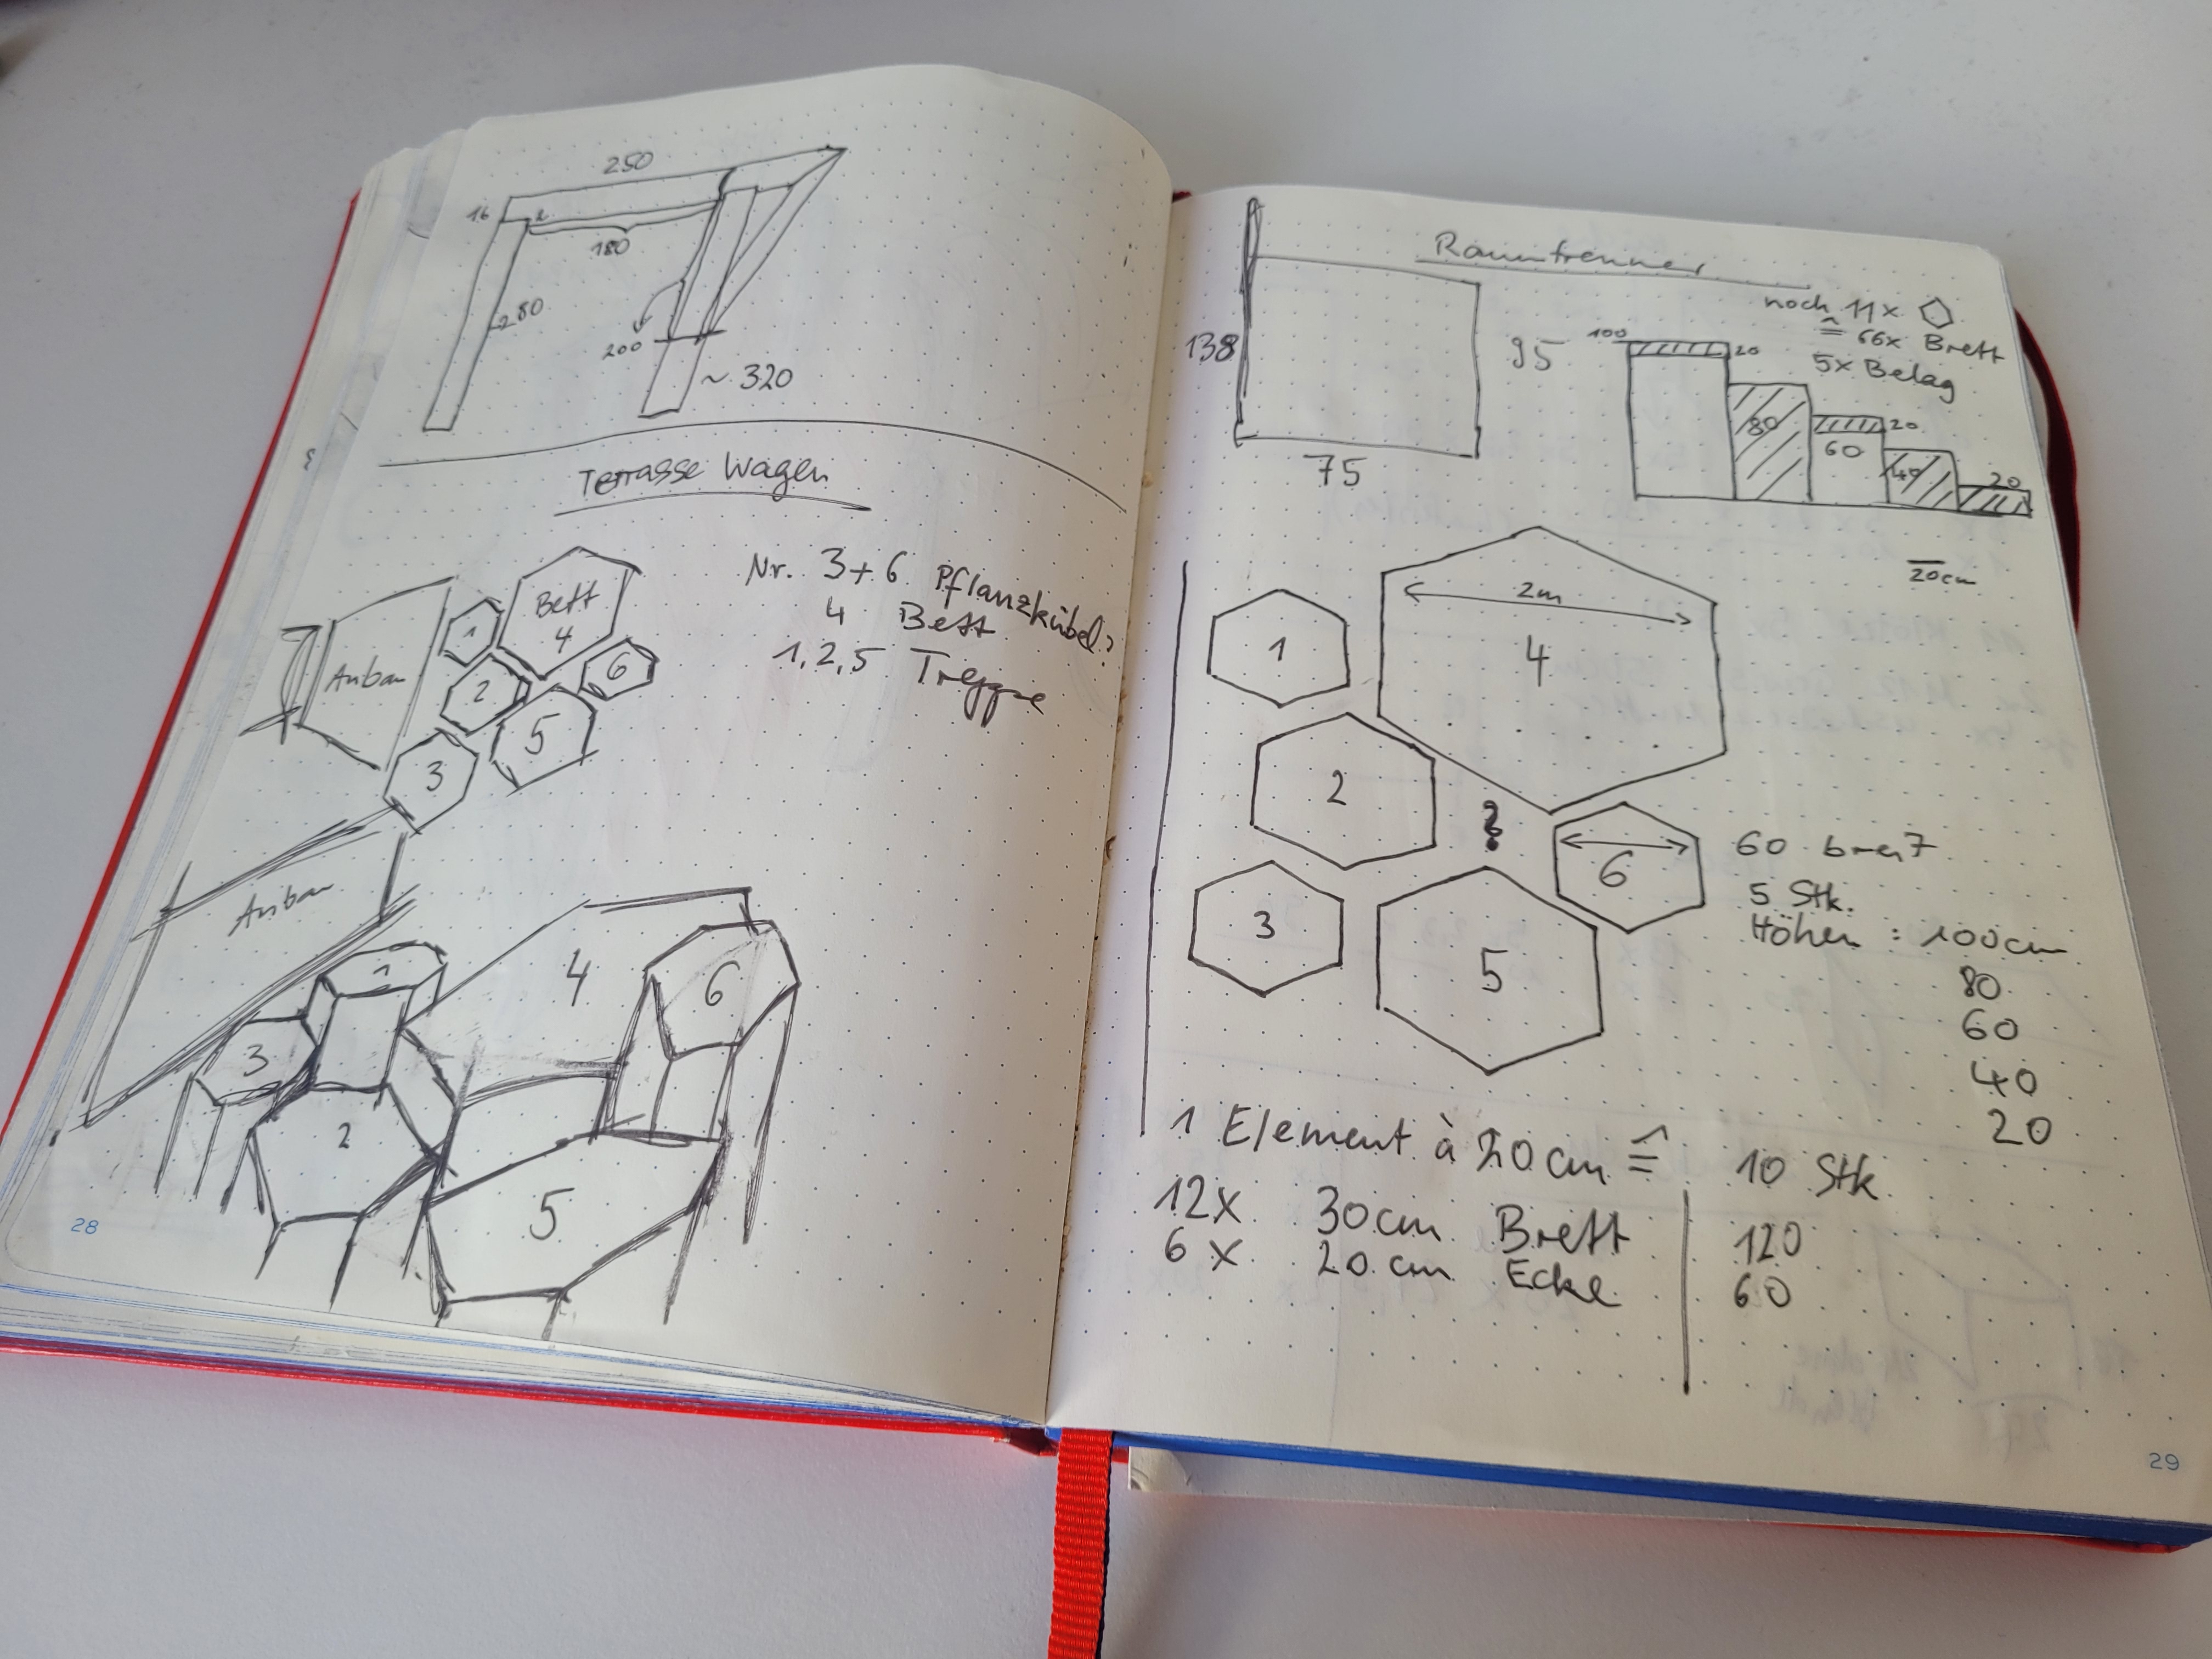 250
16
2
180
280
200
~ 320
Terrasse Wagen
Bett
4
1
Anbau
2
6
5
3
Nr. 3+6 Pflanzkübel?
4 Bett
1,2,5 Treppe
Anbau
1
4
6
3
2
5
28
Raumtrenner
138
95
75
noch 11x
≙ 66x Brett
5x Belag
100
20
80
20
60
40
20
20cm
2m
1
4
2
?
3
5
6
60 breit
5 Stk.
Höhen : 100cm
80
60
40
20
1 Element à 20cm ≙ 10 Stk
12x 30cm Brett 120
6x 20cm Ecke 60
29